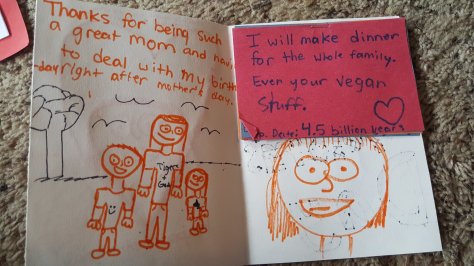 Thanks for being such
a great mom and having
to deal with my birth
-day right after mother's day.
I will make dinner
for the whole family.
Even your vegan
stuff.
Date: 4.5 billion years